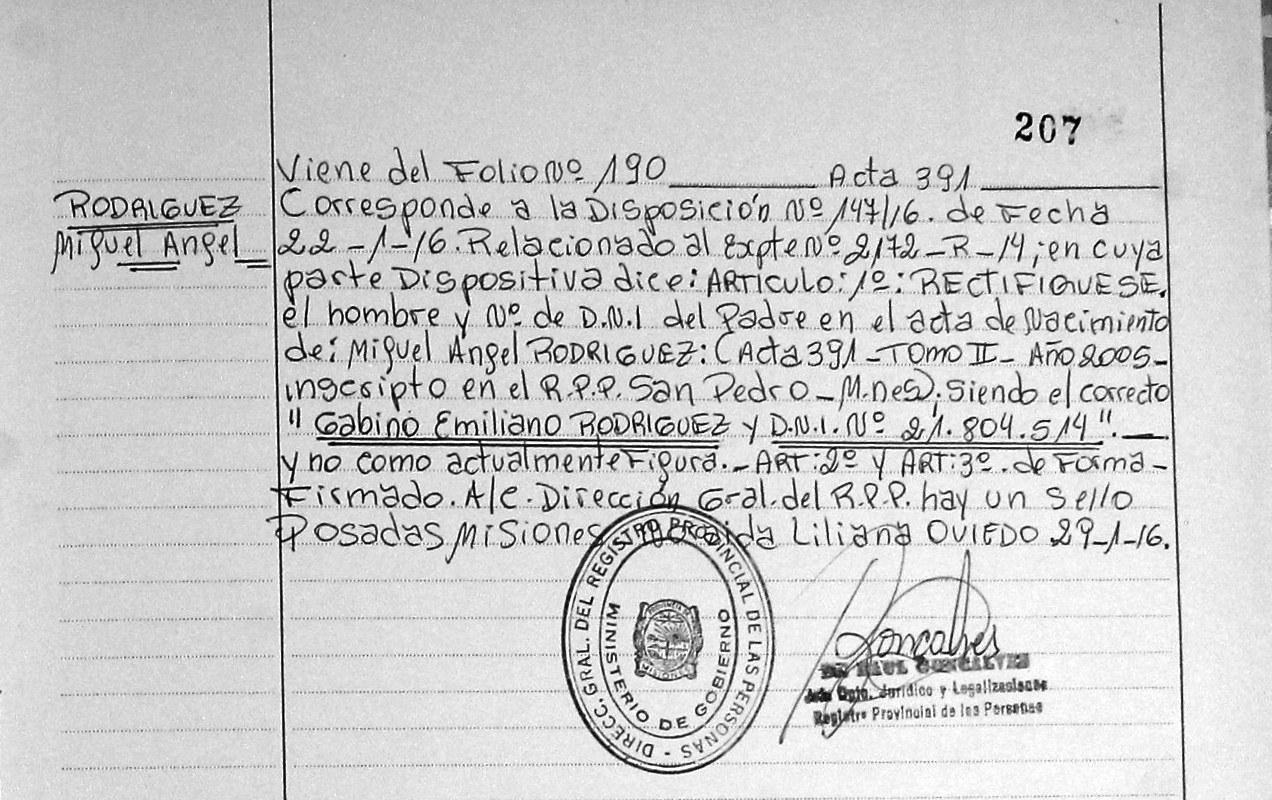 207
Viene del Folio Nº 190 ______ Acta 391 ______
RODRIGUEZ
Miguel Angel
Corresponde a la Disposición Nº 147/16. de Fecha
22-1-16. Relacionado al Expte Nº 2172-R-14; en cuya
parte Dispositiva dice: ARTICULO: 1º: RECTIFIQUESE.
el nombre y Nº de D.N.I del Padre en el acta de Nacimiento
de: Miguel Angel RODRIGUEZ: (Acta 391-TOMO II- Año 2005-
inscripto en el R.P.P. San Pedro-M.nes). Siendo el correcto
" Gabino Emiliano RODRIGUEZ y D.N.I. Nº 21.804.514 ".
y no como actualmente Figura.- ART: 2º y ART: 3º. de Forma-
Firmado. A/C. Dirección Gral. del R.P.P. hay un sello
Posadas Misiones Liliana OVIEDO 29-1-16.
DIRECC. GRAL. DEL REGISTRO PROVINCIAL DE LAS PERSONAS -
MINISTERIO DE GOBIERNO
MISIONES
Goncalves
RAUL GONCALVES
Dpto. Jurídico y Legalizaciones
Registro Provincial de las Personas